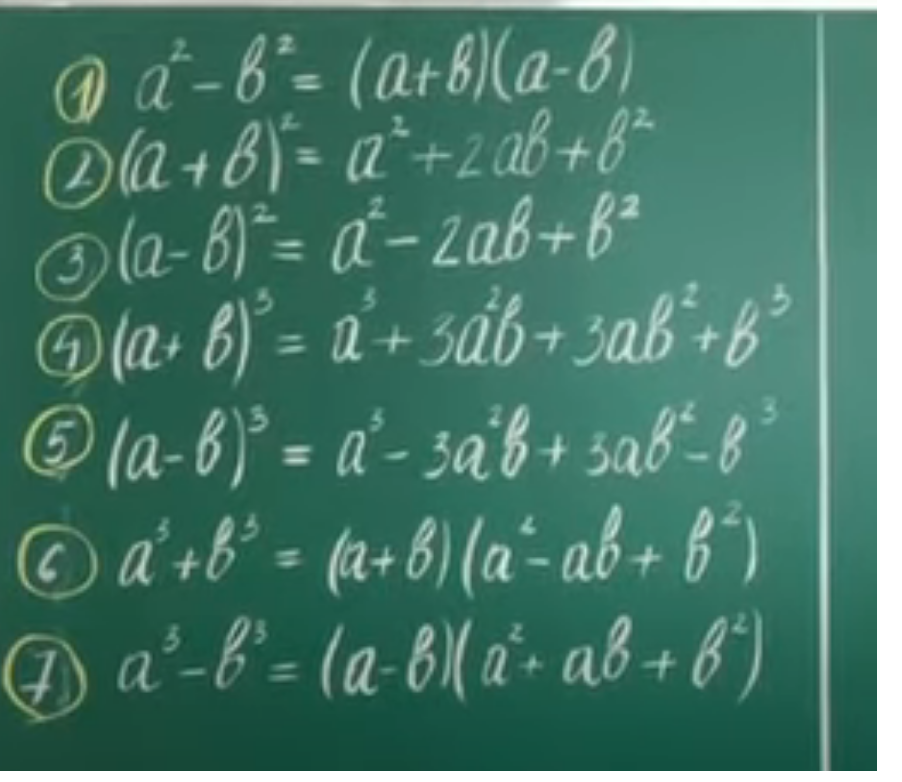 ① a² - b² = (a+b)(a-b)
② (a + b)² = a² + 2ab + b²
③ (a - b)² = a² - 2ab + b²
④ (a + b)³ = a³ + 3a²b + 3ab² + b³
⑤ (a - b)³ = a³ - 3a²b + 3ab² - b³
⑥ a³ + b³ = (a+b)(a² - ab + b²)
⑦ a³ - b³ = (a-b)(a² + ab + b²)